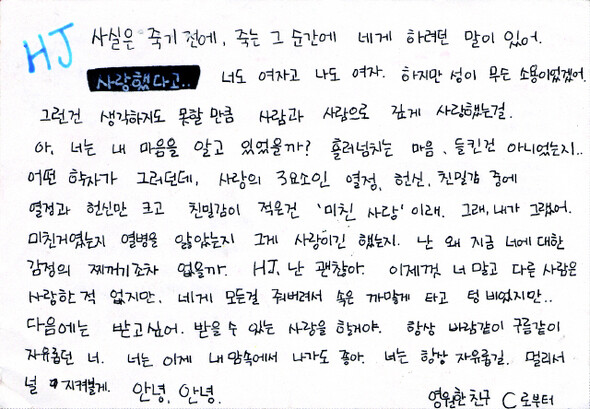 HJ 사실은 죽기 전에, 죽는 그 순간에 네게 하려던 말이 있어.
사랑했다고.. 너도 여자고 나도 여자. 하지만 성이 무슨 소용이었겠어.
그런건 생각하지도 못할 만큼 사람과 사람으로 깊게 사랑했는걸.
아, 너는 내 마음을 알고 있었을까? 흘러넘치는 마음, 들킨건 아니었는지..
어떤 학자가 그러던데, 사랑의 3요소인 열정, 헌신, 친밀감 중에
열정과 헌신만 크고 친밀감이 적은건 '미친 사랑' 이래. 그래, 내가 그랬어.
미친거였는지 열병을 앓았는지 그게 사랑이긴 했는지. 난 왜 지금 너에 대한
감정의 찌꺼기조차 없을까. HJ, 난 괜찮아. 이제껏 너 말고 다른 사람은
사랑한 적 없지만, 네게 모든걸 줘버려서 속은 까맣게 타고 텅 비었지만..
다음에는 받고싶어. 받을 수 있는 사랑을 할거야. 항상 바람같이 구름같이
자유롭던 너. 너는 이제 내 맘속에서 나가도 좋아. 너는 항상 자유롭길. 멀리서
널 지켜볼게. 안녕, 안녕. 영원한 친구 C로부터